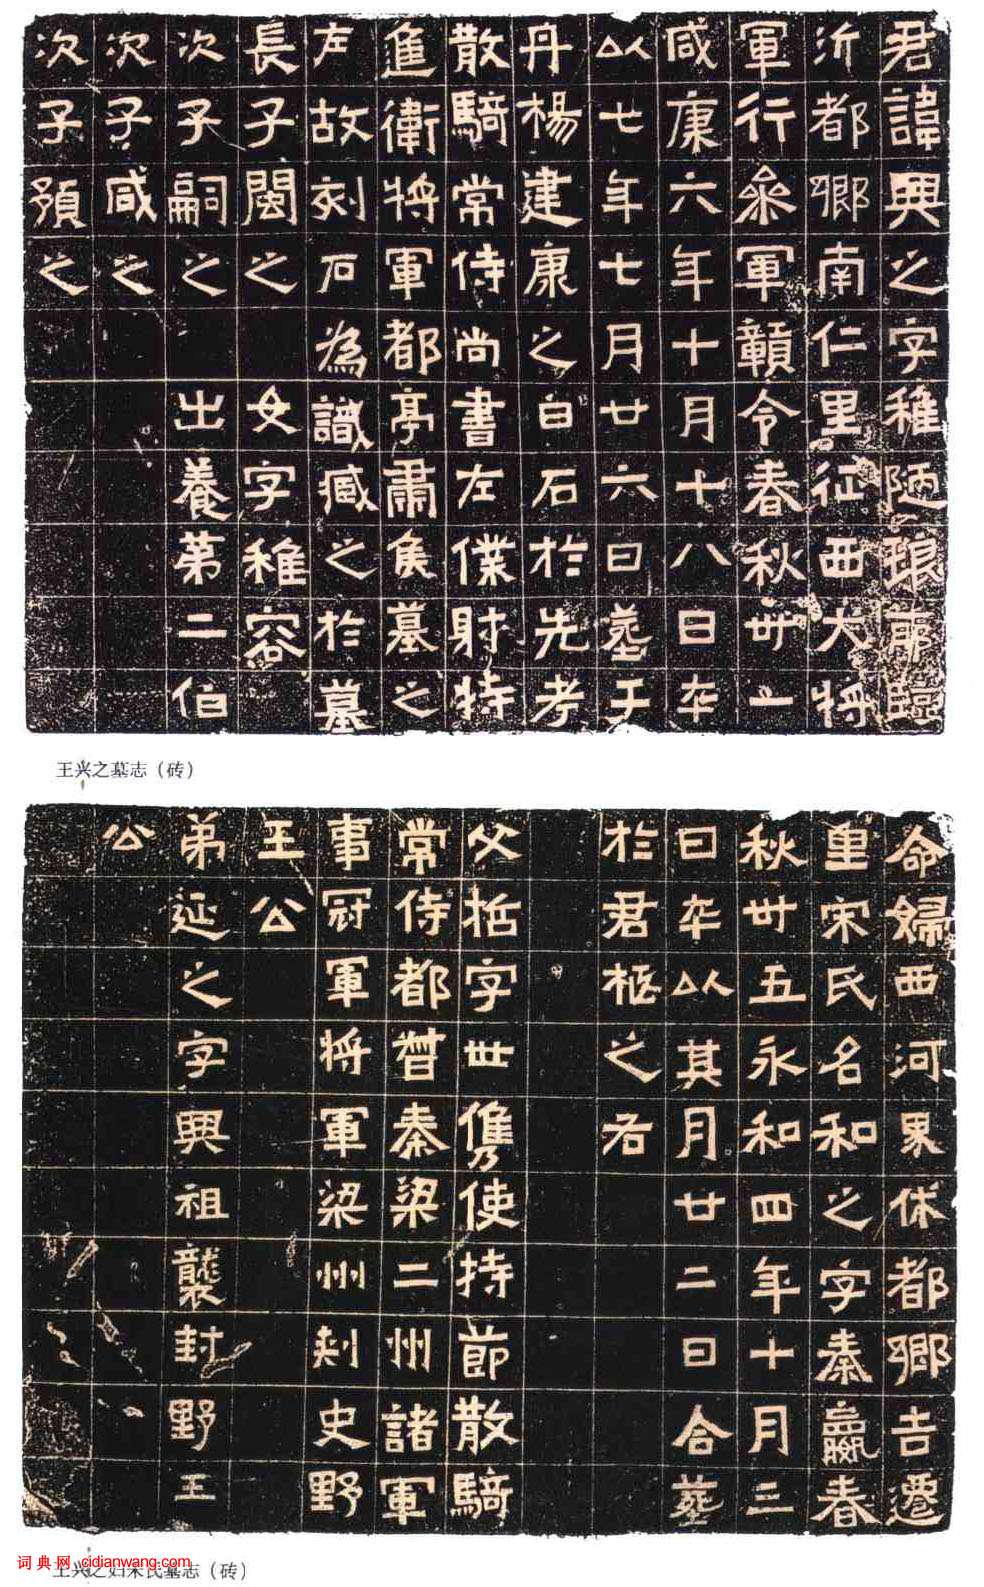 君諱興之字稚陋琅耶臨
沂都鄉南仁里征西大將
軍行參軍贛令春秋卅一
咸康六年十月十八日卒
以七年七月廿六日葬于
丹楊建康之白石於先考
散騎常侍尚書左僕射特
進衛將軍都亭肅侯墓之
左故刻石為識臧之於墓
長子閩之 女字稚容
次子嗣之 出養第二伯
次子咸之
次子預之
王兴之墓志（砖）
命婦西河界休都鄉吉遷
里宋氏名和之字秦嬴春
秋卅五永和四年十月三
日卒以其月廿二日合葬
於君柩之右
父哲字世儁使持節散騎
常侍都督秦梁二州諸軍
事冠軍將軍梁州刺史野
王公
弟延之字興祖襲封野王
公
王兴之妇宋氏墓志（砖）
词典网 cidianwang.com